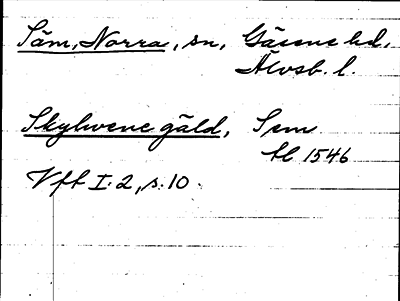 Säm, Norra, sn, Gäsene hd,
Älvsb. l.
Skylwene gäld, Sem
hl 1546
Vfft I:2, s. 10.